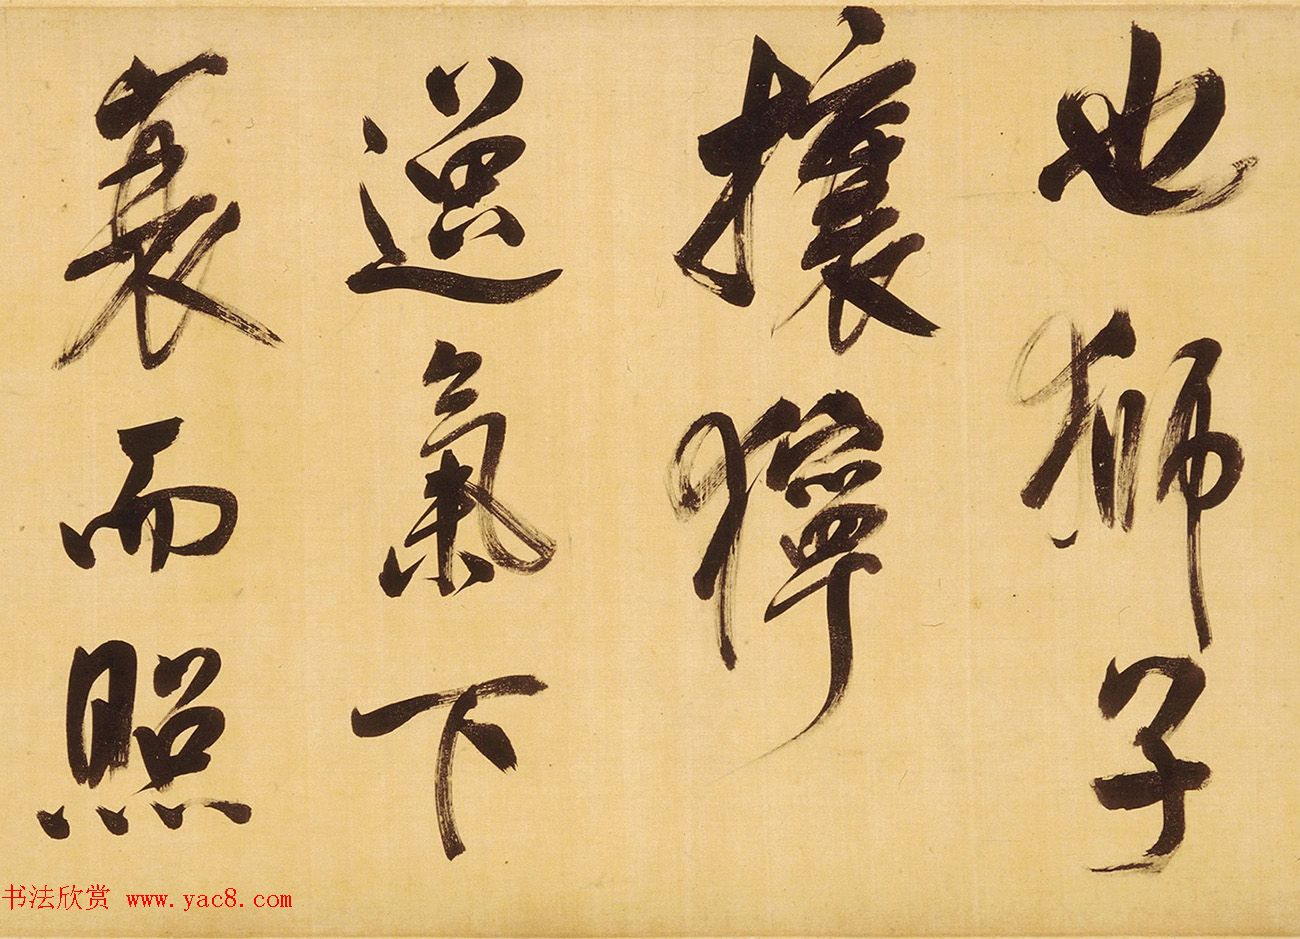 也獅子
攘獰
氣下
而照
书法欣赏 www.yac8.com